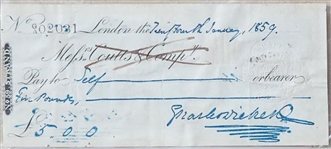 No. 202021 London the Twenty fourth January, 1859.
Messrs. Coutts & Compy.
Pay to Self or bearer
Five Pounds,
£5.0.0
Charles Dickens